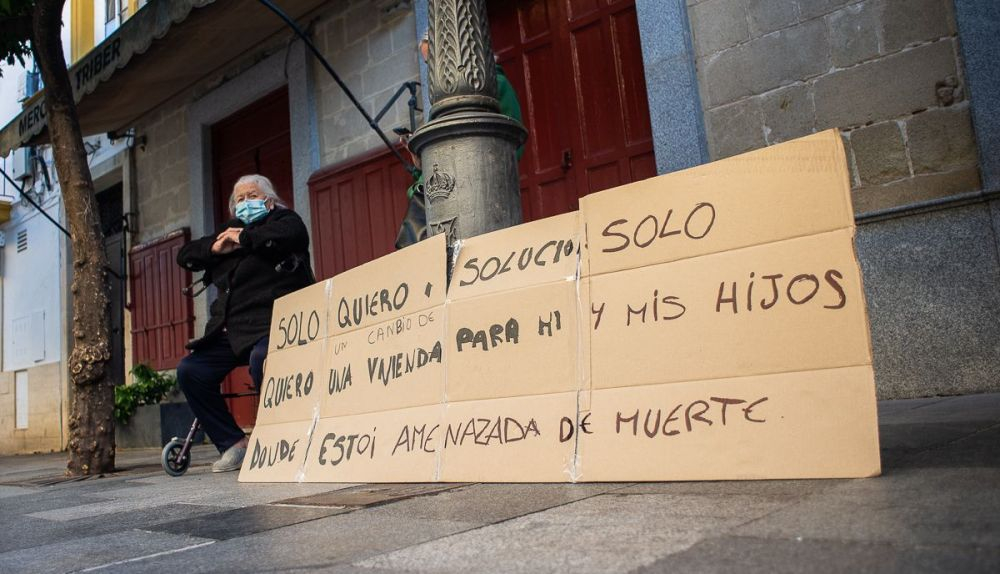 MERC
TRIBER
SOLO QUIERO 1 SOLUCION SOLO
UN CANBIO DE
QUIERO UNA VIVIENDA PARA MI Y MIS HIJOS
DONDE ESTOI AMENAZADA DE MUERTE.